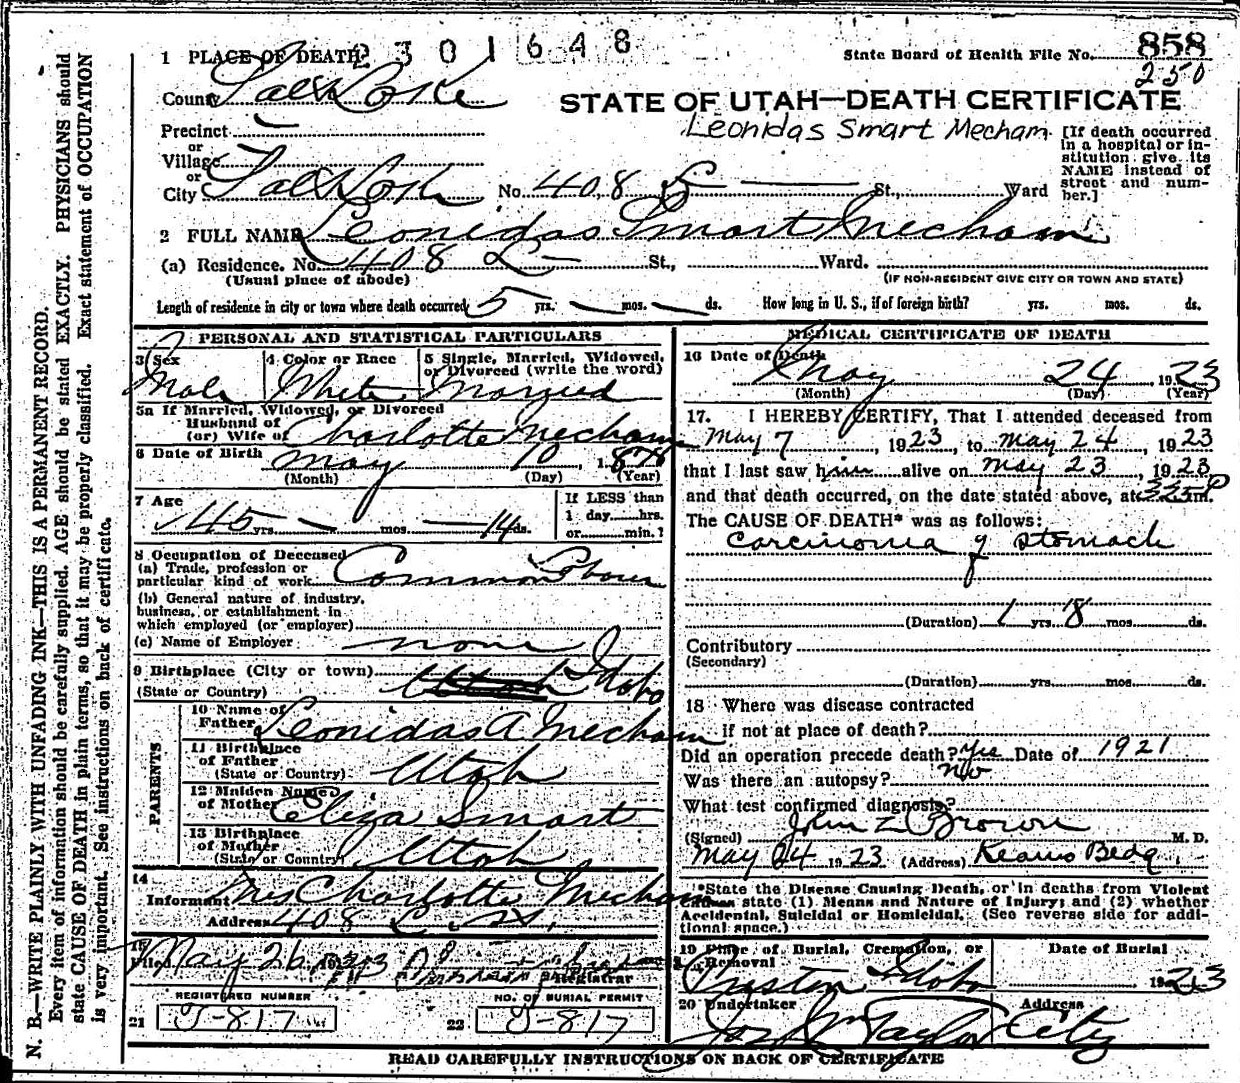 N. B.—WRITE PLAINLY WITH UNFADING INK—THIS IS A PERMANENT RECORD.
Every item of information should be carefully supplied. AGE should be stated EXACTLY. PHYSICIANS should
state CAUSE OF DEATH in plain terms, so that it may be properly classified. Exact statement of OCCUPATION
is very important. See instructions on back of certificate.
2301648
1 PLACE OF DEATH
State Board of Health File No. 858
250
County Salt Lake
STATE OF UTAH—DEATH CERTIFICATE
Leonidas Smart Mecham
Precinct
or
Village
or
City Salt Lake No. 408 St., Ward
[If death occurred
in a hospital or in-
stitution give its
NAME instead of
street and num-
ber.]
2 FULL NAME Leonidas Smart Mecham
(a) Residence. No. 408 L St., Ward.
(Usual place of abode)
(IF NON-RESIDENT GIVE CITY OR TOWN AND STATE)
Length of residence in city or town where death occurred 5 yrs. — mos. — ds. How long in U. S., if of foreign birth? yrs. mos. ds.
PERSONAL AND STATISTICAL PARTICULARS
3 Sex Male
4 Color or Race White
5 Single, Married, Widowed,
or Divorced (write the word)
Married
5a If Married, Widowed, or Divorced
Husband of
(or) Wife of Charlotte Mecham
6 Date of Birth May 10, 1878
(Month) (Day) (Year)
7 Age
45 yrs. — mos. 14 ds.
If LESS than
1 day hrs.
or min.?
8 Occupation of Deceased
(a) Trade, profession or
particular kind of work Common Labour
(b) General nature of industry,
business, or establishment in
which employed (or employer)
(c) Name of Employer none
9 Birthplace (City or town)
(State or Country) Utah Idaho
PARENTS
10 Name of
Father Leonidas A Mecham
11 Birthplace
of Father
(State or Country) Utah
12 Maiden Name
of Mother Eliza Smart
13 Birthplace
of Mother
(State or Country) Utah
14
Informant Mrs Charlotte Mecham
Address 408 L St.
15
Filed May 26 1923
Registrar
REGISTERED NUMBER
21 J-817
NO. OF BURIAL PERMIT
22 J-817
MEDICAL CERTIFICATE OF DEATH
16 Date of Death
May 24, 1923
(Month) (Day) (Year)
17. I HEREBY CERTIFY, That I attended deceased from
May 7, 1923, to May 24, 1923
that I last saw him alive on May 23, 1923
and that death occurred, on the date stated above, at 325 P m.
The CAUSE OF DEATH* was as follows:
Carcinoma of stomach
(Duration) 1 yrs. 8 mos. ds.
Contributory
(Secondary)
(Duration) yrs. mos. ds.
18 Where was disease contracted
if not at place of death?
Did an operation precede death? Yes Date of 1921
Was there an autopsy? no
What test confirmed diagnosis?
(Signed) John Z Brown M. D.
May 24 1923 (Address) Kearns Bldg.
*State the Disease Causing Death, or in deaths from Violent
Causes state (1) Means and Nature of Injury; and (2) whether
Accidental, Suicidal or Homicidal. (See reverse side for addi-
tional space.)
19 Place of Burial, Cremation, or
Removal
Preston Idaho
Date of Burial
1923
20 Undertaker
Jos Wm Taylor
Address
City
READ CAREFULLY INSTRUCTIONS ON BACK OF CERTIFICATE